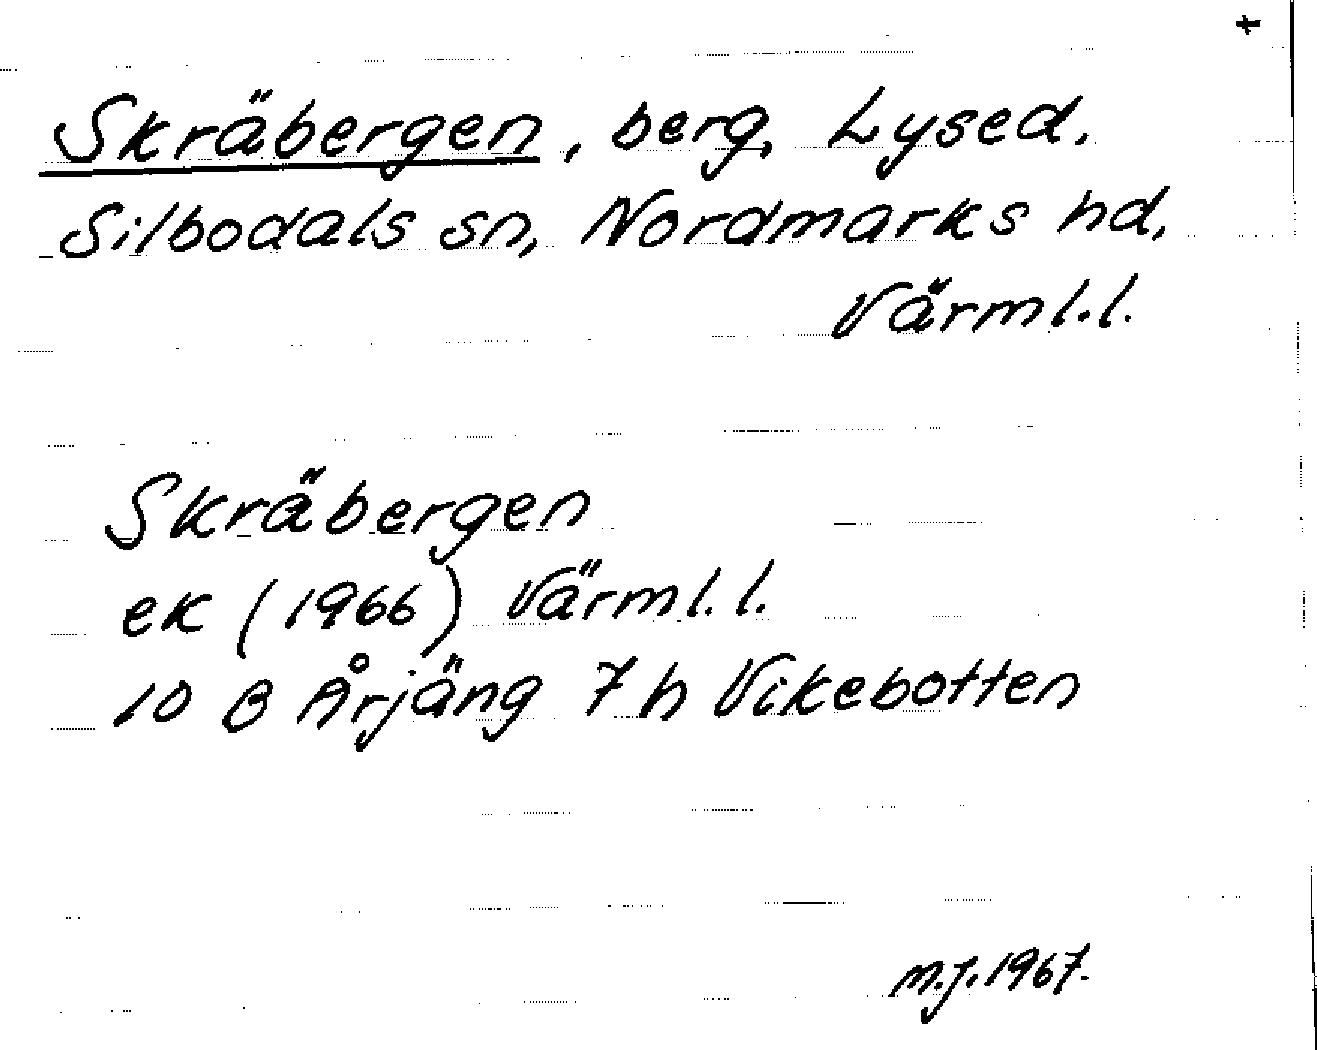 Skräbergen, berg, Lysed,
Silbodals sn, Nordmarks hd,
Värml.l.
Skräbergen
ek (1966) Värml.l.
10 B Årjäng 7 h Vikebotten
M.J. 1967.